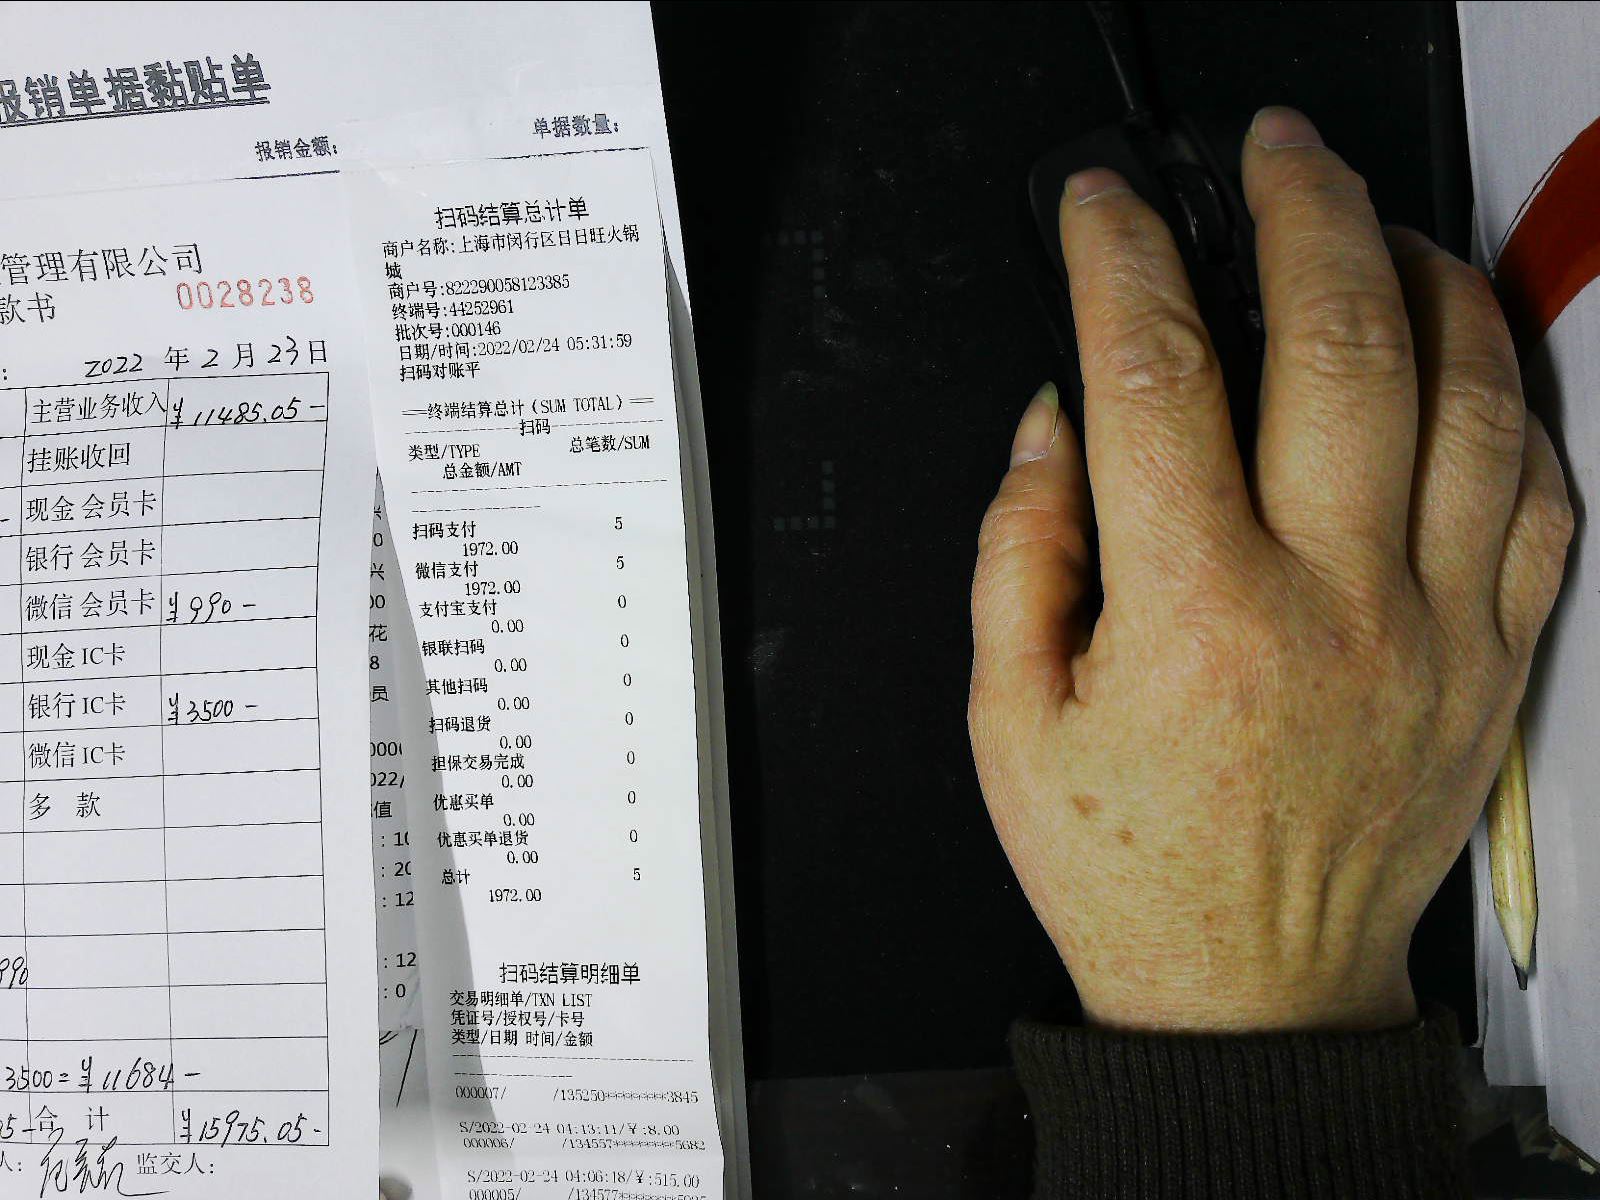 报销单据黏贴单
报销金额:
单据数量:
管理有限公司
款书
0028238
2022 年 2 月 23 日
主营业务收入 ¥11485.05-
挂账收回
现金 会员卡
银行 会员卡
微信 会员卡 ¥990-
现金 IC卡
银行 IC卡 ¥3500-
微信 IC卡
多 款
990
3500=¥11684-
合 计 ¥15975.05-
人:
监交人:
扫码结算总计单
商户名称:上海市闵行区日日旺火锅
城
商户号:822290058123385
终端号:44252961
批次号:000146
日期/时间:2022/02/24 05:31:59
扫码对账平
==终端结算总计(SUM TOTAL)==
扫码
类型/TYPE 总笔数/SUM
总金额/AMT
扫码支付 5
1972.00
微信支付 5
1972.00
支付宝支付 0
0.00
银联扫码 0
0.00
其他扫码 0
0.00
扫码退货 0
0.00
担保交易完成 0
0.00
优惠买单 0
0.00
优惠买单退货 0
0.00
总计 5
1972.00
扫码结算明细单
交易明细单/TXN LIST
凭证号/授权号/卡号
类型/日期 时间/金额
000007/ /135250********3845
S/2022-02-24 04:13:11/¥:8.00
000006/ /134557********5682
S/2022-02-24 04:06:18/¥:515.00
000005/